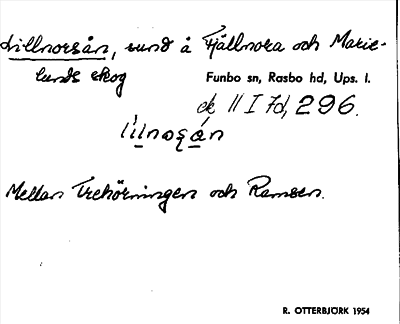 Lillnorsån, sund å Fjällnora och Marie-
lunds skog
Funbo sn, Rasbo hd, Ups. l.
ek 11 I 7d, 296.
lilnoșån
Mellan Trehörningen och Ramsen.
R. OTTERBJÖRK 1954